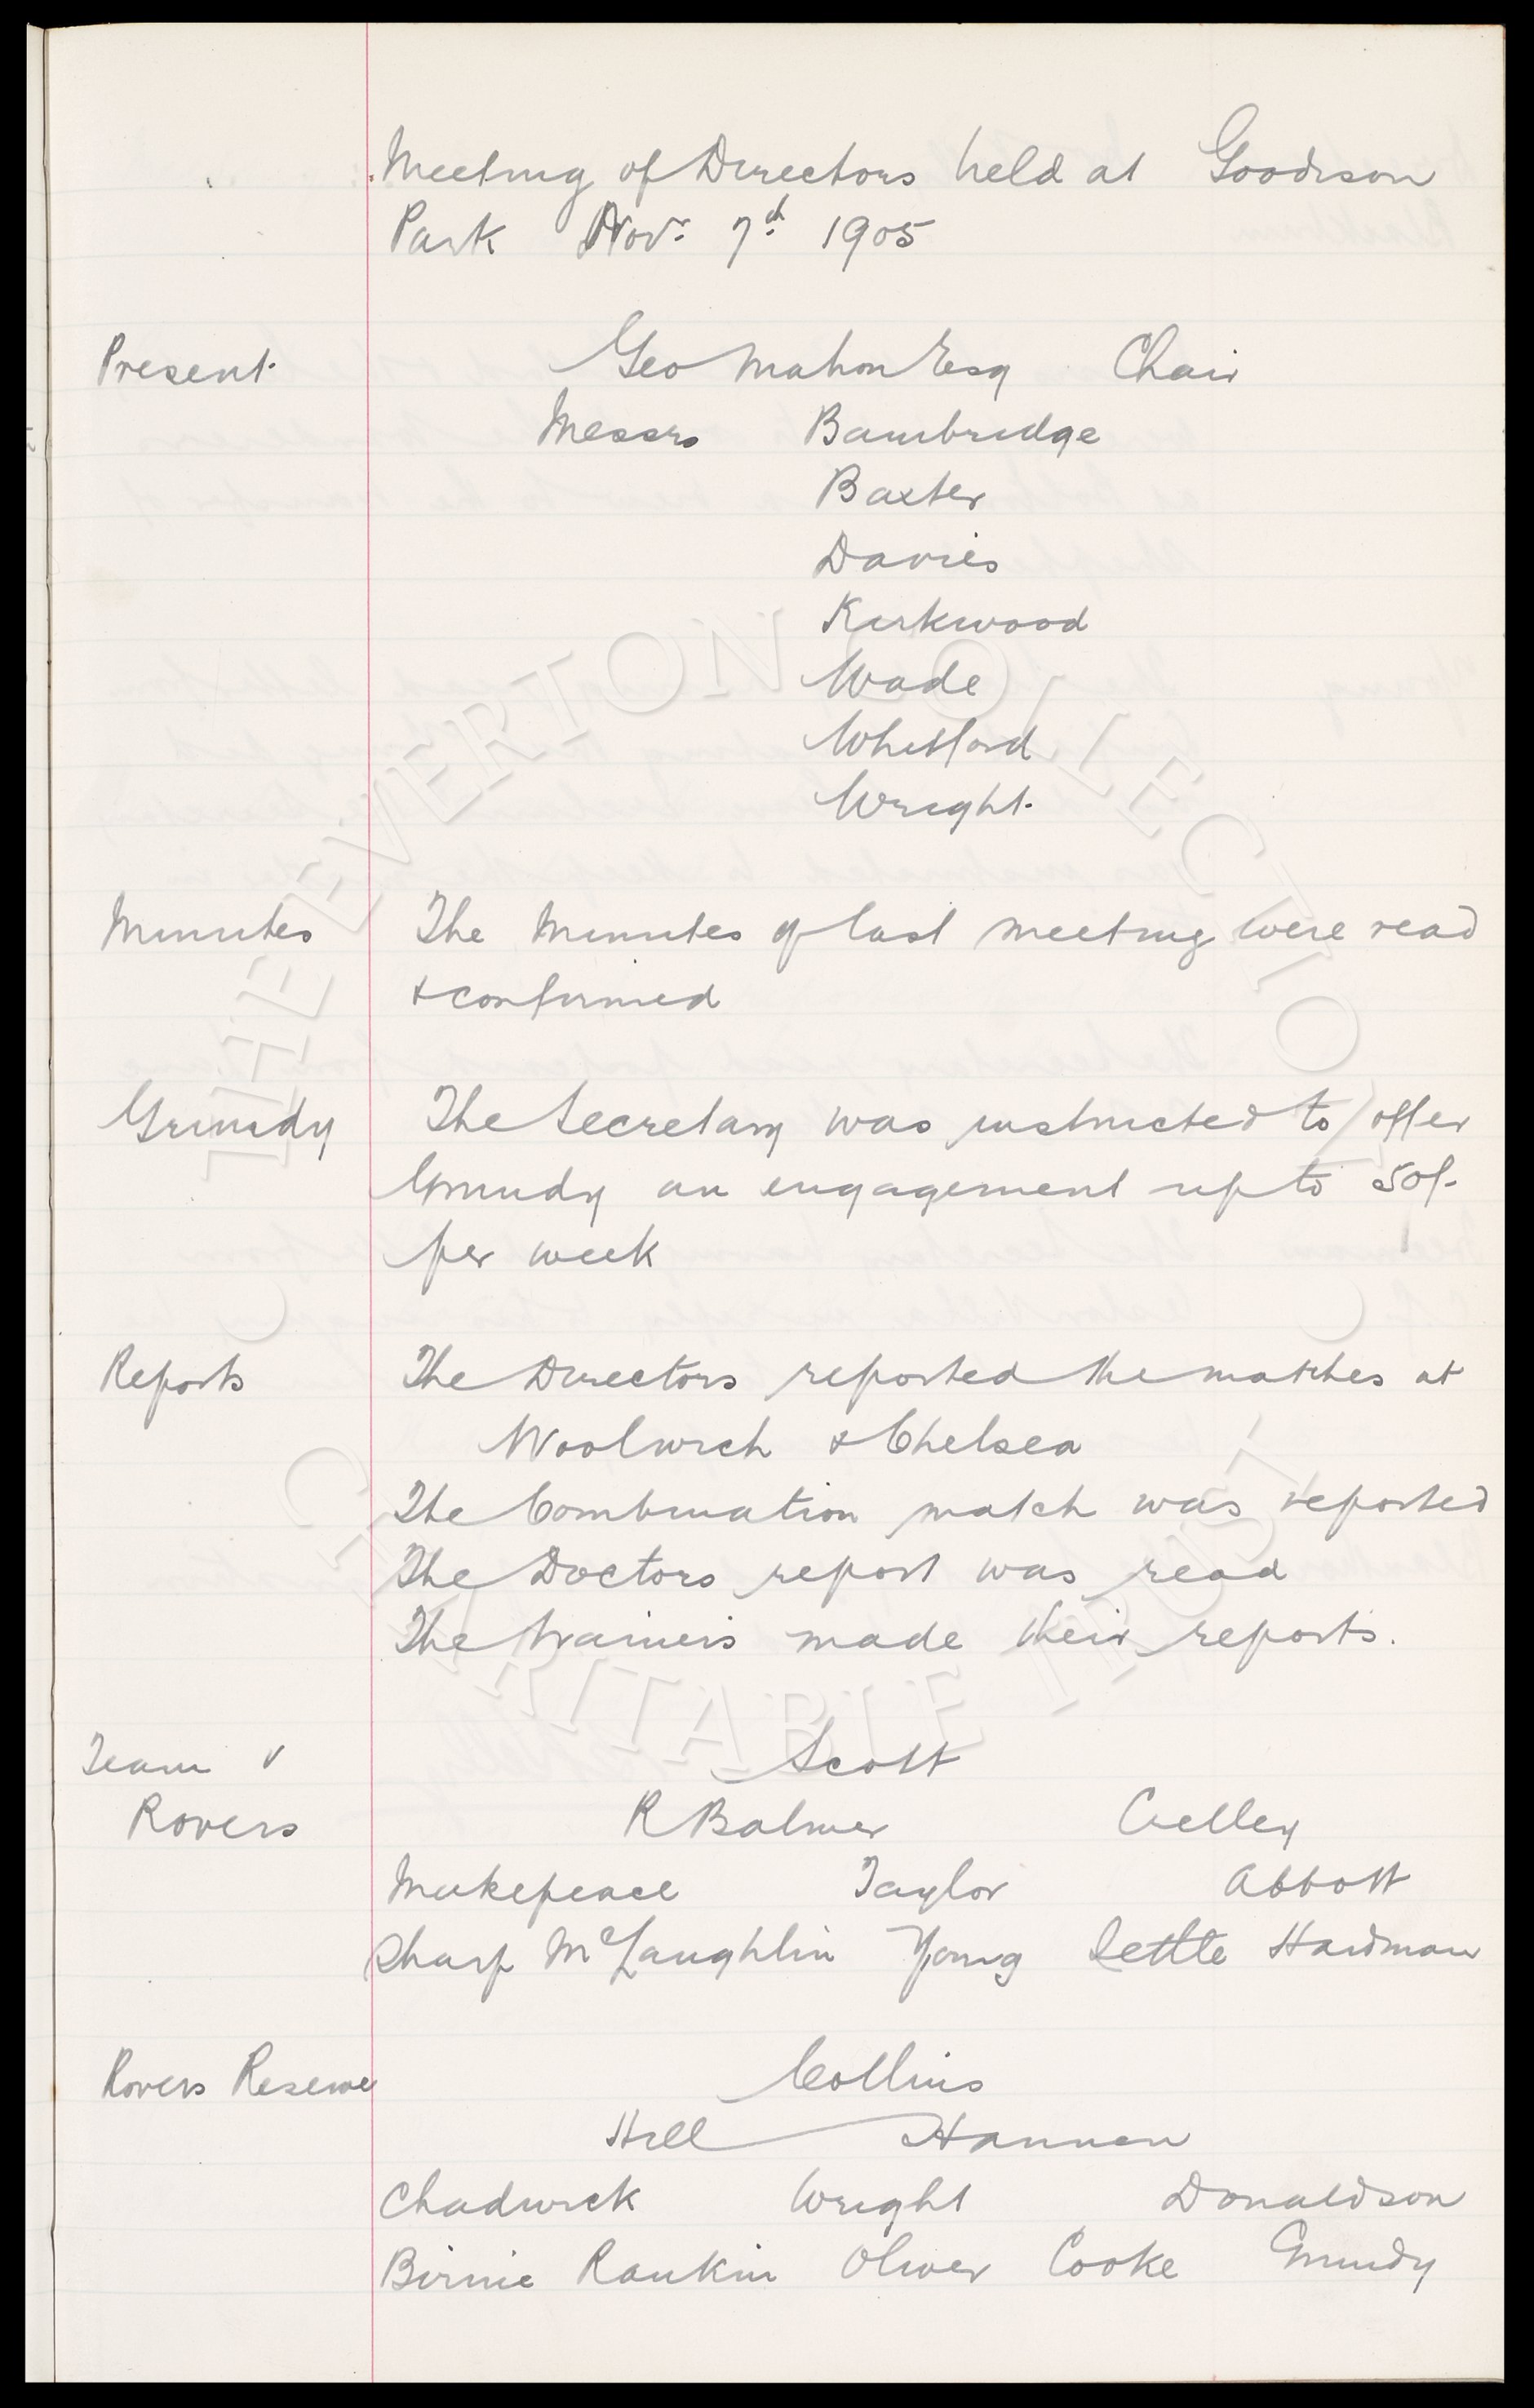 Meeting of Directors held at Goodison
Park Nov. 7th 1905
Present. Geo Mahon Esq Chair
Messrs Bainbridge
Baxter
Davies
Kirkwood
Wade
Whitford
Wright.
Minutes The Minutes of last meeting were read
& confirmed
Grundy The Secretary was instructed to offer
Grundy an engagement up to 50/-
per week
Reports The Directors reported the matches at
Woolwich & Chelsea
The Combination match was reported
The Doctors report was read
The trainers made their reports.
Team v Scott
Rovers R Balmer Crelley
Makepeace Taylor Abbott
Sharp McLaughlin Young Settle Hardman
Rovers Reserve Collins
Hill Hannon
Chadwick Wright Donaldson
Birnie Rankin Oliver Cooke Grundy
THE EVERTON COLLECTION
CHARITABLE TRUST